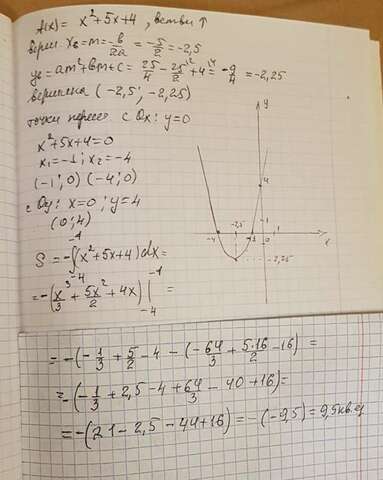 f(x) = x²+5x+4, ветви ↑
верш. x₀=m=-b/2a = -5/2 = -2,5
y₀=am²+bm+c = 25/4 - 25/2 + 4 = -9/4 = -2,25
вершина (-2,5; -2,25)
точки перес с Ox: y=0
x²+5x+4=0
x₁=-1; x₂=-4
(-1; 0) (-4; 0)
с Oy: x=0; y=4
(0; 4)
S = -∫₋₄⁻¹(x²+5x+4)dx =
= -(x³/3 + 5x²/2 + 4x) |₋₄⁻¹ =
y
4
-2,5
1
-4
-1
0
1
x
-2,25
= -(-1/3 + 5/2 - 4 - (-64/3 + 5·16/2 - 16) =
= -(-1/3 + 2,5 - 4 + 64/3 - 40 + 16) =
= -(21 - 2,5 - 44 + 16) = -(-9,5) = 9,5 кв.ед